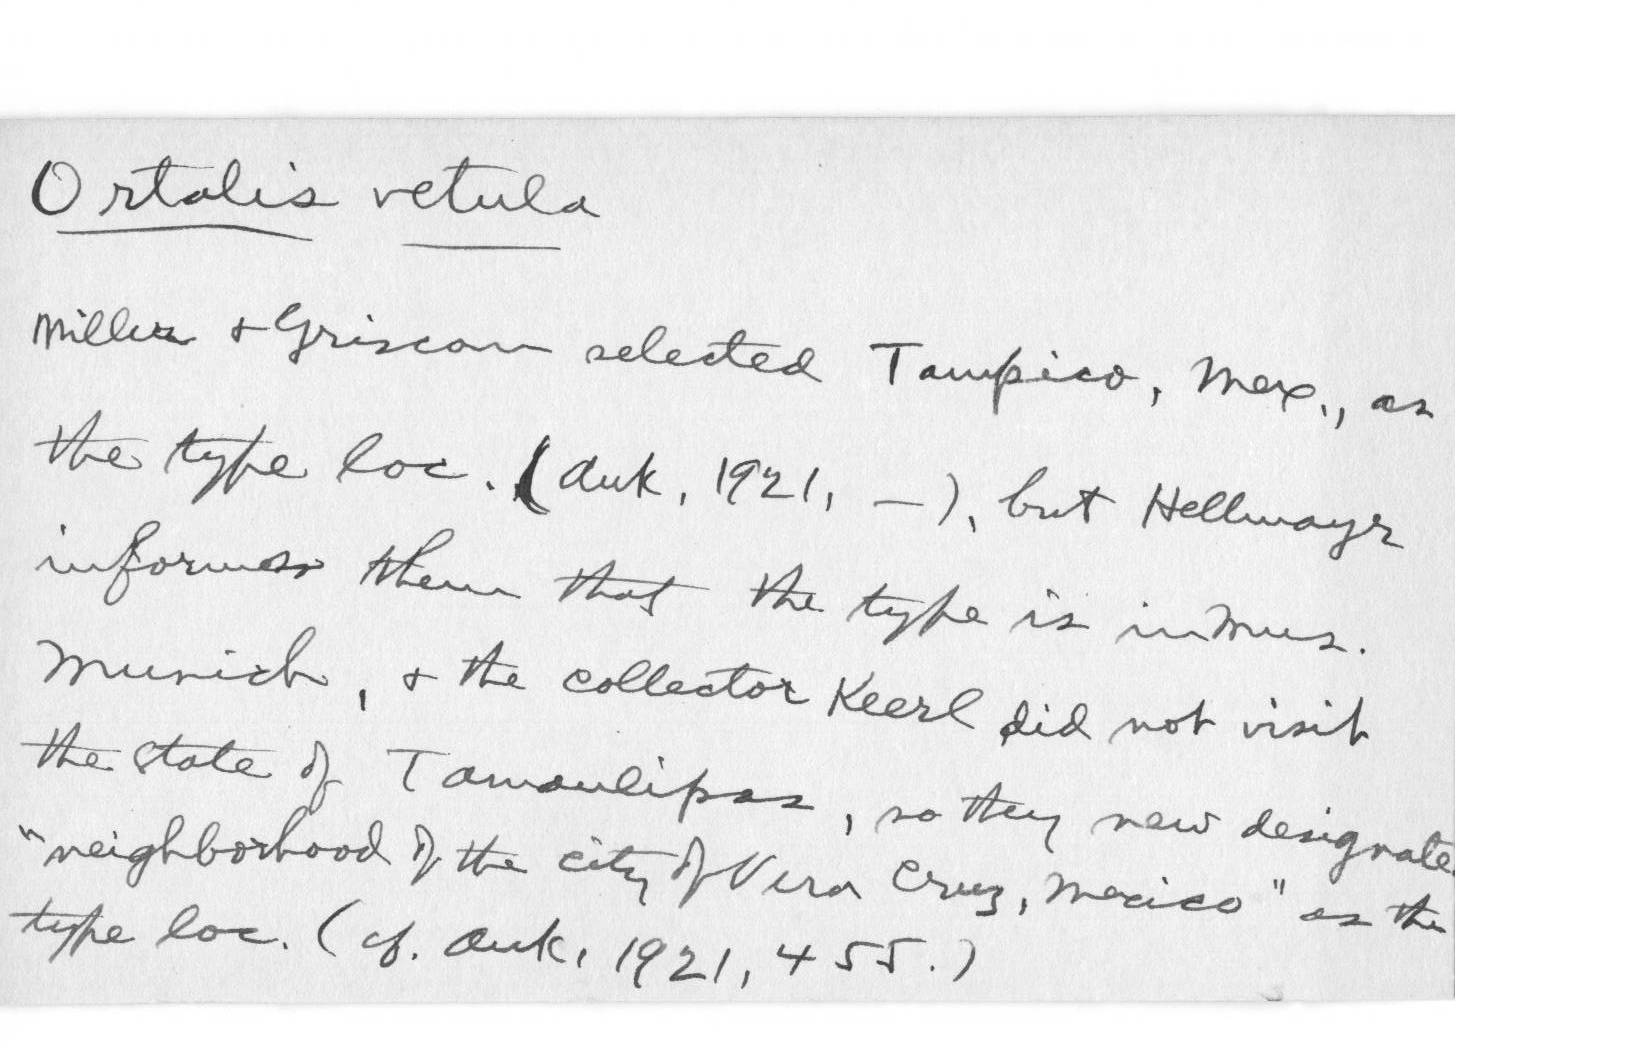 Ortalis vetula
Miller + Griscom selected Tampico, Mex., as
the type loc. (Auk, 1921, —), but Hellmayr
informs them that the type is in Mus.
Munich, + the collector Keerl did not visit
the state of Tamaulipas, so they new designate
"neighborhood of the city of Vera Cruz, Mexico" as the
type loc. (cf. Auk, 1921, 455.)